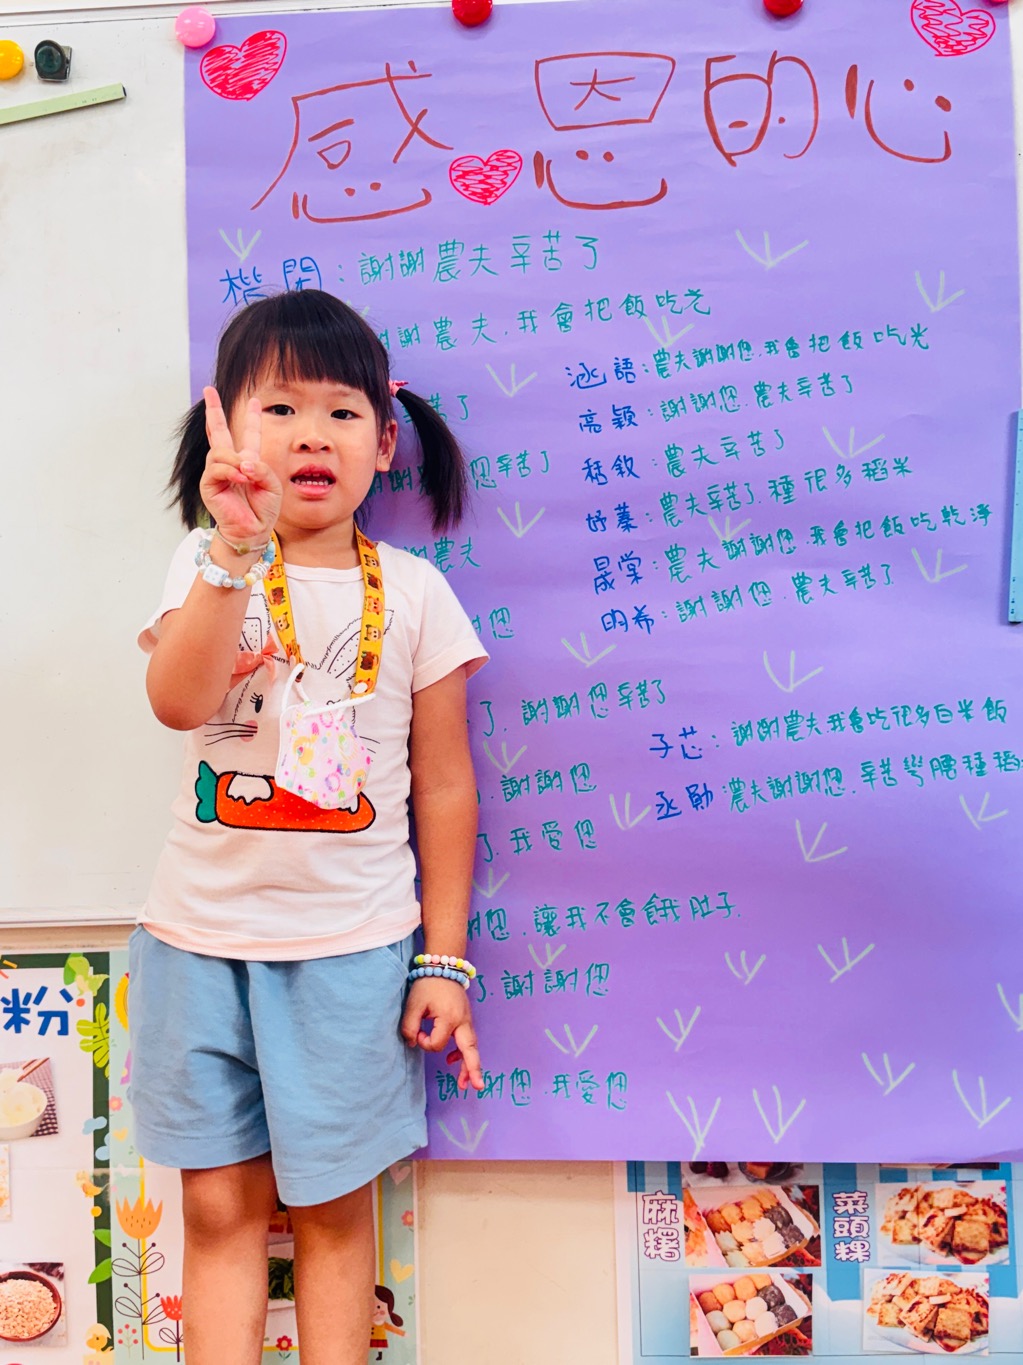 感恩的心
楷閎：謝謝農夫辛苦了
謝農夫.我會把飯吃光
涵語：農夫謝謝您.我會把飯吃光
苦了
亮穎：謝謝您.農夫辛苦了
您辛苦了
秳敘：農夫辛苦了
妤蓁：農夫辛苦了.種很多稻米
謝農夫
晟棠：農夫謝謝您.我會把飯吃乾淨
您
明希：謝謝您.農夫辛苦了
了.謝謝您辛苦了
子芯：謝謝農夫.我會吃很多白米飯
謝謝您
丞勛：農夫謝謝您.辛苦彎腰種稻
了.我愛您
謝您.讓我不會餓肚子.
了.謝謝您
謝謝您.我愛您
粉
麻糬
菜頭粿